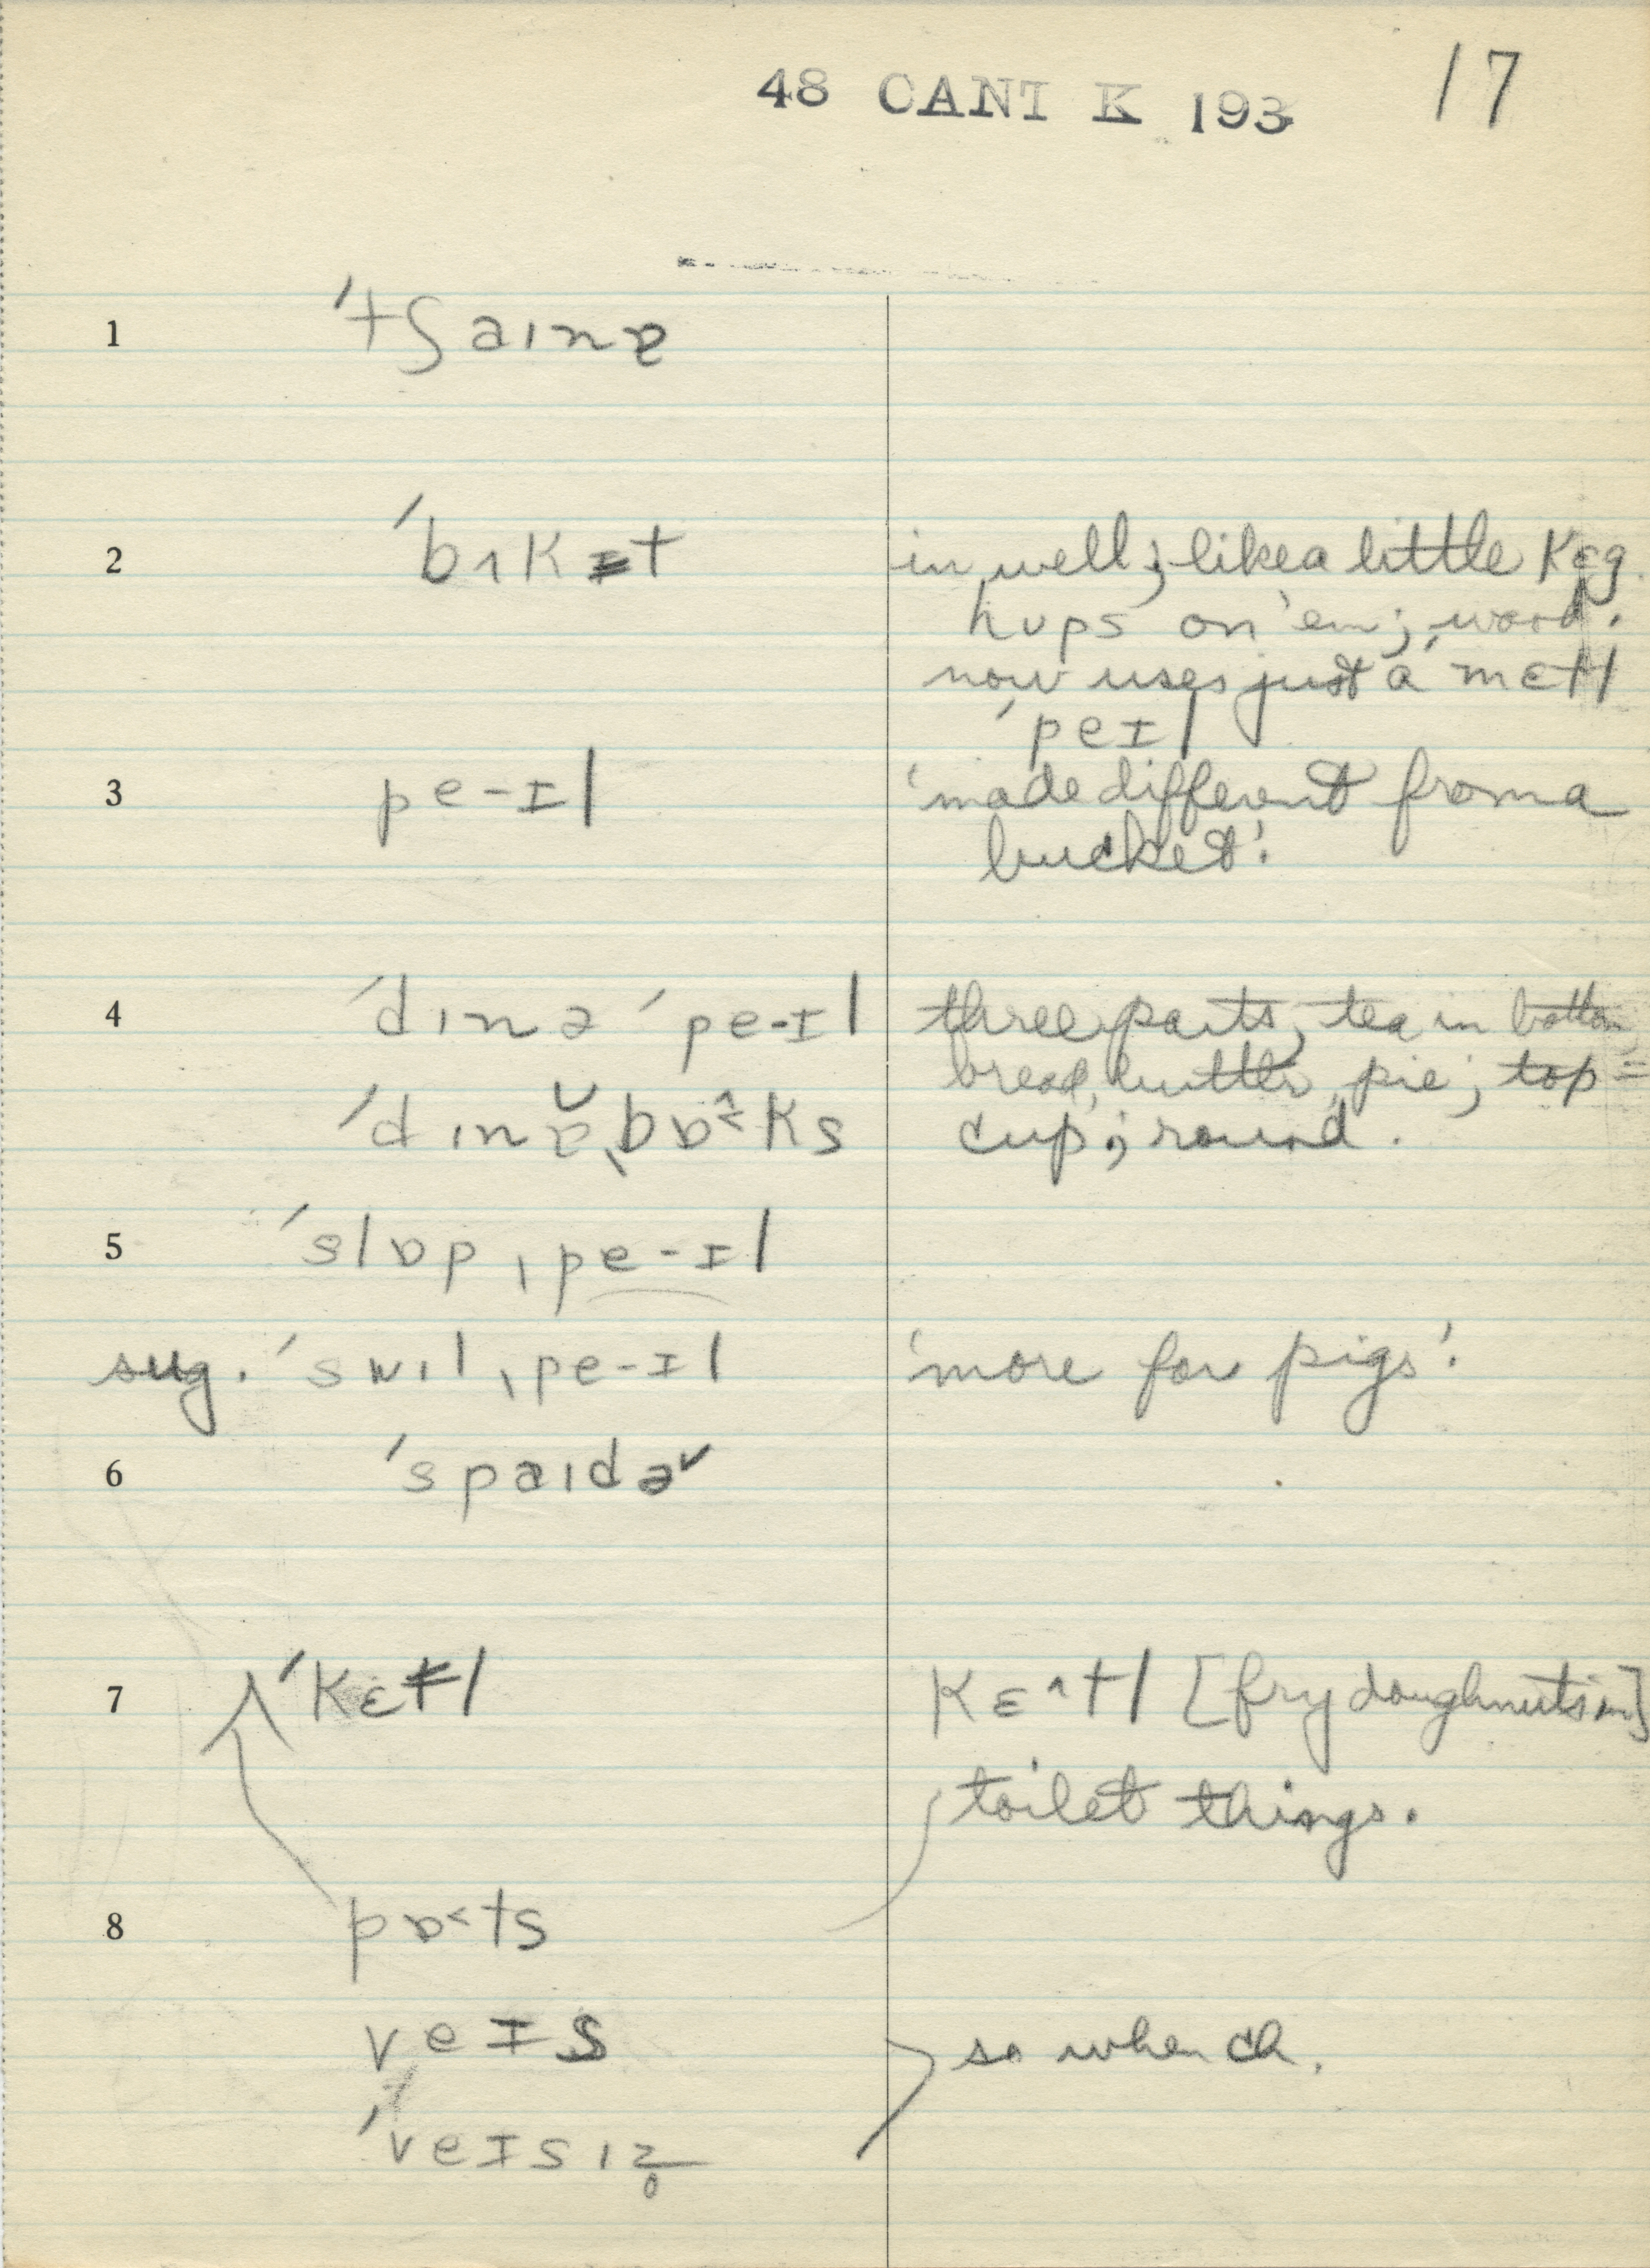 48 CANT K 193 17
1 ˈtʃaɪnɐ
2 ˈbɩkɪt in well; like a little kɛg.
hʊps on 'em; wood.
now uses just a ˈmɛtl
ˈpeɪl
3 pe-ɪl 'made different from a
bucket'.
4 ˈdɪnə ˈpe-ɪl three parts, tea in bottom
bread, butter, pie; top =
ˈdɪnɐ̆ˌbɒ˄˂ks cup; round.
5 ˈslɒpˌpe-ɪl
sug. ˈswɪlˌpe-ɪl 'more for pigs'.
6 ˈspaɪdə˅
7 ˈkɛtl kɛ˄tl [fry doughnuts in]
toilet things.
8 pɒ˂ts
veɪs so when ch.
ˈveɪsɪz̥